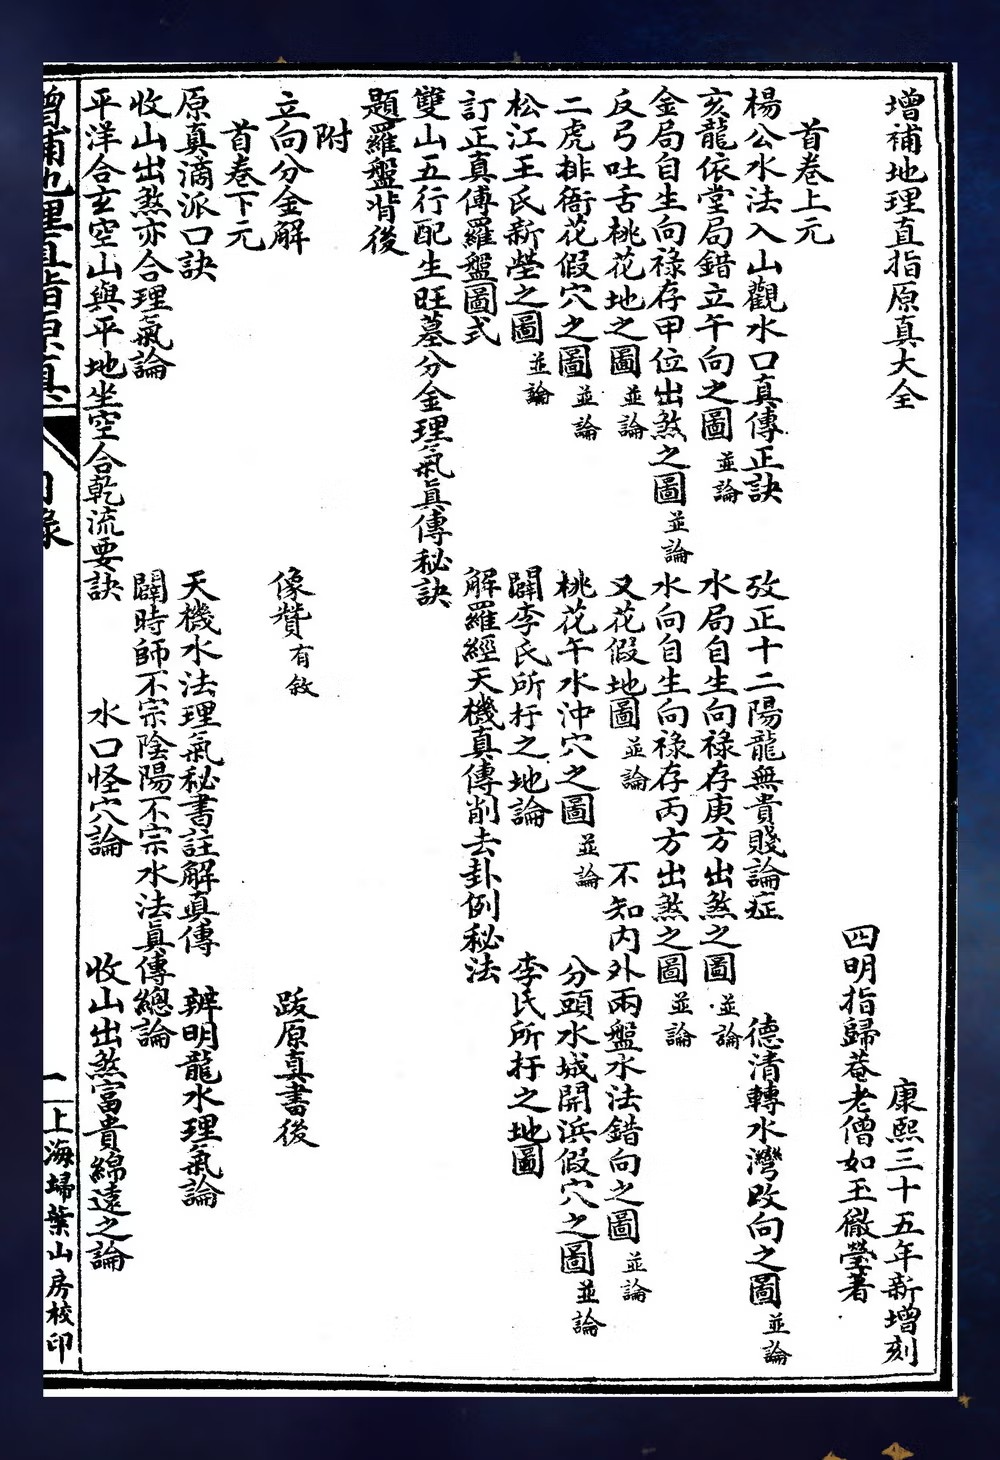 增補地理直指原真大全　康熙三十五年新增刻
四明指歸菴老僧如玉徹瑩著
首卷上元
楊公水法入山觀水口真傳正訣　攷正十二陽龍無貴賤論症　德清轉水灣改向之圖並論
亥龍依堂局錯立午向之圖並論　水局自生向祿存庚方出煞之圖並論
金局自生向祿存甲位出煞之圖並論　水向自生向祿存丙方出煞之圖並論
反弓吐舌桃花地之圖並論　又花假地圖並論　不知內外兩盤水法錯向之圖並論
二虎排衙花假穴之圖並論　桃花午水沖穴之圖並論　分頭水城開浜假穴之圖並論
松江王氏新塋之圖並論　闢李氏所扞之地論　李氏所扞之地圖
訂正真傳羅盤圖式　解羅經天機真傳削去卦例秘法
雙山五行配生旺墓分金理氣真傳秘訣
題羅盤背後
附
立向分金解　像贊有敘　跋原真書後
首卷下元
原真滴派口訣　天機水法理氣秘書註解真傳　辨明龍水理氣論
收山出煞亦合理氣論　闢時師不宗陰陽不宗水法真傳總論
平洋合玄空山與平地坐空合乾流要訣　水口怪穴論　收山出煞富貴綿遠之論
增補地理直指原真　目錄　二　上海埽葉山房校印